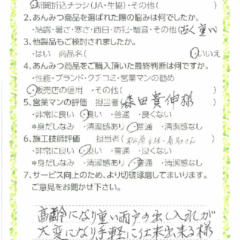 新聞折込チラシ・JA・生協・その他(
2.あんみつ商品を選ばれた際の悩みは何でしたか。
・結露・暑さ・寒さ・西日・防犯・騒音・その他(古く重い
3.他製品もご検討されましたか。
・はい 商品名( ・いいえ
4.あんみつ商品をご購入頂いた最終判断は何ですか。
・性能・ブランド・クチコミ・営業マンの勧め
・販売店の信用 ・その他(
5.営業マンの評価 担当者(森田貴伸様
・非常に良い ・良い ・普通 ・良くない
*身だしなみ ・清潔感あり ・普通 ・清潔感なし
6.施工技術師評価 担当者(
・非常に良い ・良い ・普通 ・良くない
*身だしなみ ・清潔感あり ・普通 ・清潔感なし
7.サービス向上のため、より切磋琢磨してまいります。
ご意見をお聞かせ下さい。
高齢になり重い雨戸の出し入れが
大変になり手軽に出来る様